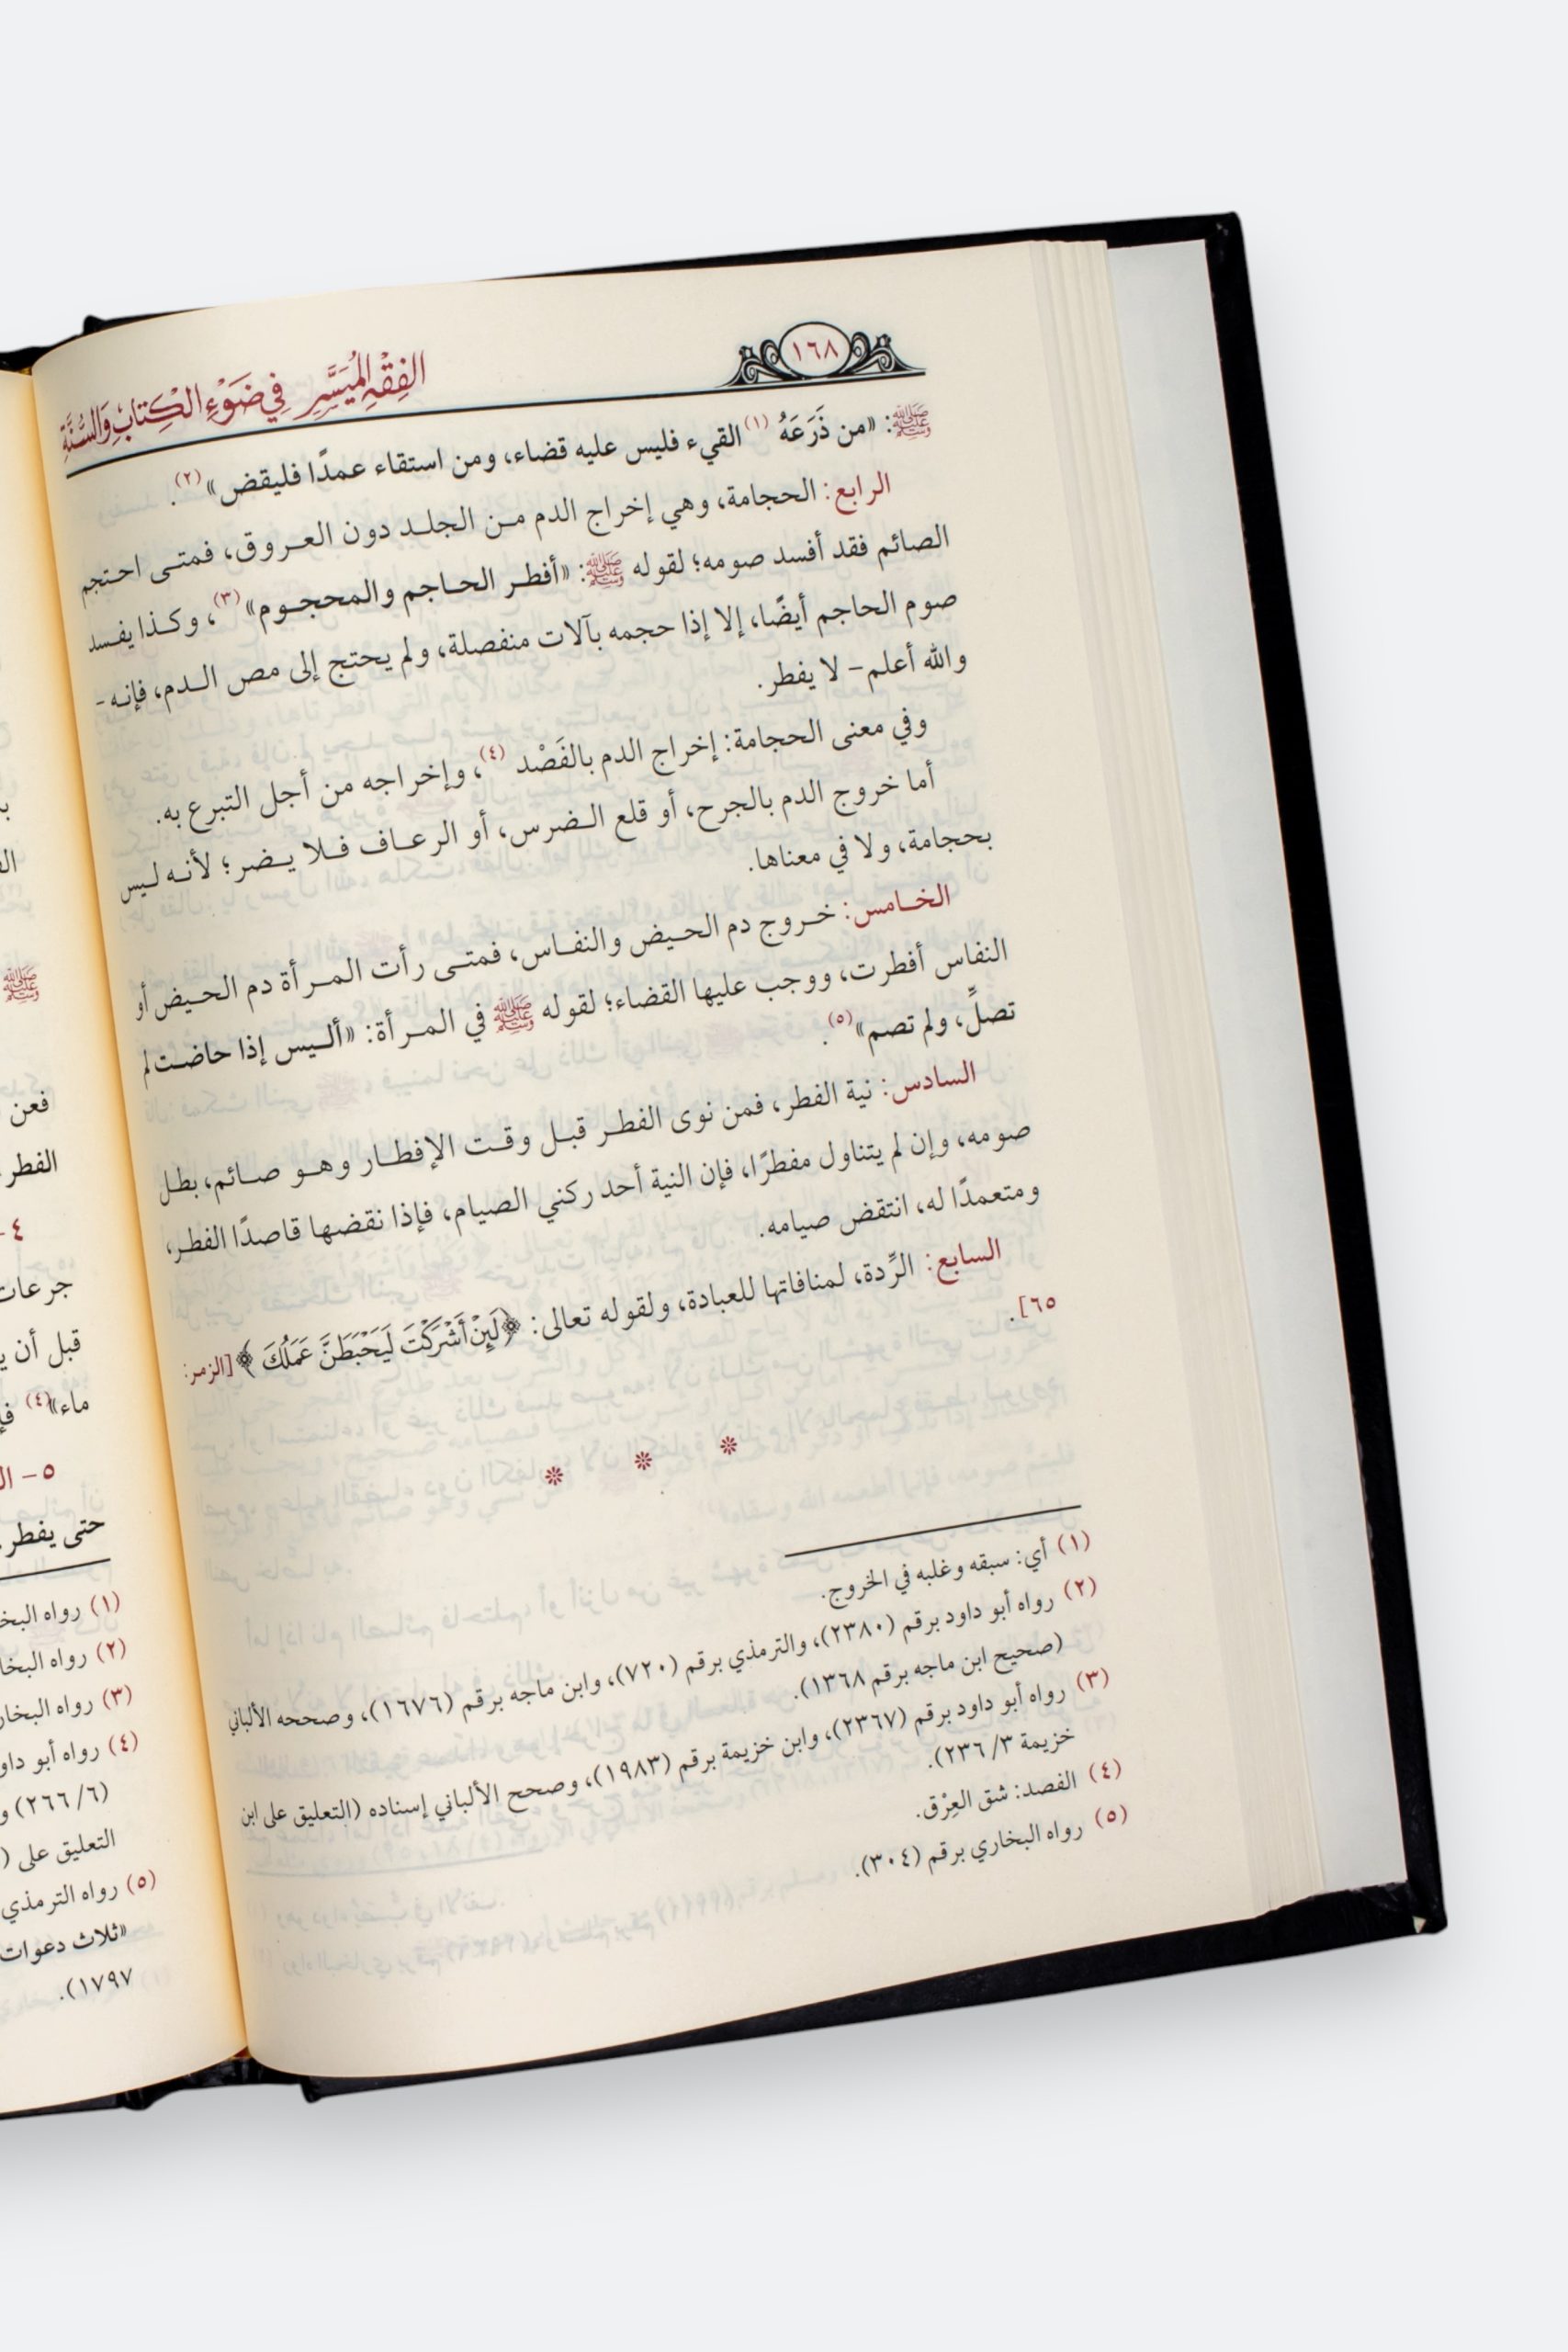 ١٦٨
الفِقْهُ المُيَسَّرِ فِي ضَوْءِ الكِتَابِ وَالسُّنَّةِ
ﷺ: «من ذَرَعَهُ (١) القيء فليس عليه قضاء، ومن استقاء عمدًا فليقض» (٢).
الرابع: الحجامة، وهي إخراج الدم من الجلد دون العروق، فمتى احتجم
الصائم فقد أفسد صومه؛ لقوله ﷺ: «أفطر الحاجم والمحجوم» (٣)، وكذا يفسد
صوم الحاجم أيضًا، إلا إذا حجمه بآلات منفصلة، ولم يحتج إلى مص الدم، فإنه -
والله أعلم- لا يفطر.
وفي معنى الحجامة: إخراج الدم بالفَصْد (٤)، وإخراجه من أجل التبرع به.
أما خروج الدم بالجرح، أو قلع الضرس، أو الرعاف فلا يضر؛ لأنه ليس
بحجامة، ولا في معناها.
الخامس: خروج دم الحيض والنفاس، فمتى رأت المرأة دم الحيض أو
النفاس أفطرت، ووجب عليها القضاء؛ لقوله ﷺ في المرأة: «أليس إذا حاضت لم
تصلِّ، ولم تصم» (٥).
السادس: نية الفطر، فمن نوى الفطر قبل وقت الإفطار وهو صائم، بطل
صومه، وإن لم يتناول مفطرًا، فإن النية أحد ركني الصيام، فإذا نقضها قاصدًا الفطر،
ومتعمدًا له، انتقض صيامه.
السابع: الرِّدة، لمنافاتها للعبادة، ولقوله تعالى: ﴿لَئِنْ أَشْرَكْتَ لَيَحْبَطَنَّ عَمَلُكَ﴾ [الزمر:
٦٥].
(١) أي: سبقه وغلبه في الخروج.
(٢) رواه أبو داود برقم (٢٣٨٠)، والترمذي برقم (٧٢٠)، وابن ماجه برقم (١٦٧٦)، وصححه الألباني
(صحيح ابن ماجه برقم ١٣٦٨).
(٣) رواه أبو داود برقم (٢٣٦٧)، وابن خزيمة برقم (١٩٨٣)، وصحح الألباني إسناده (التعليق على ابن
خزيمة ٣/ ٢٣٦).
(٤) الفصد: شق العِرْق.
(٥) رواه البخاري برقم (٣٠٤).
ﷺ
فعن
الفطر
٤-
جرعات
قبل أن
ماء» (٤)
٥-
حتى يفطر
(١) رواه
(٢) رواه
(٣) رواه
(٤) رواه أبو
(٦/ ٢٦٦)
التعليق على (
(٥) رواه الترمذي
«ثلاث دعوات
١٧٩٧).